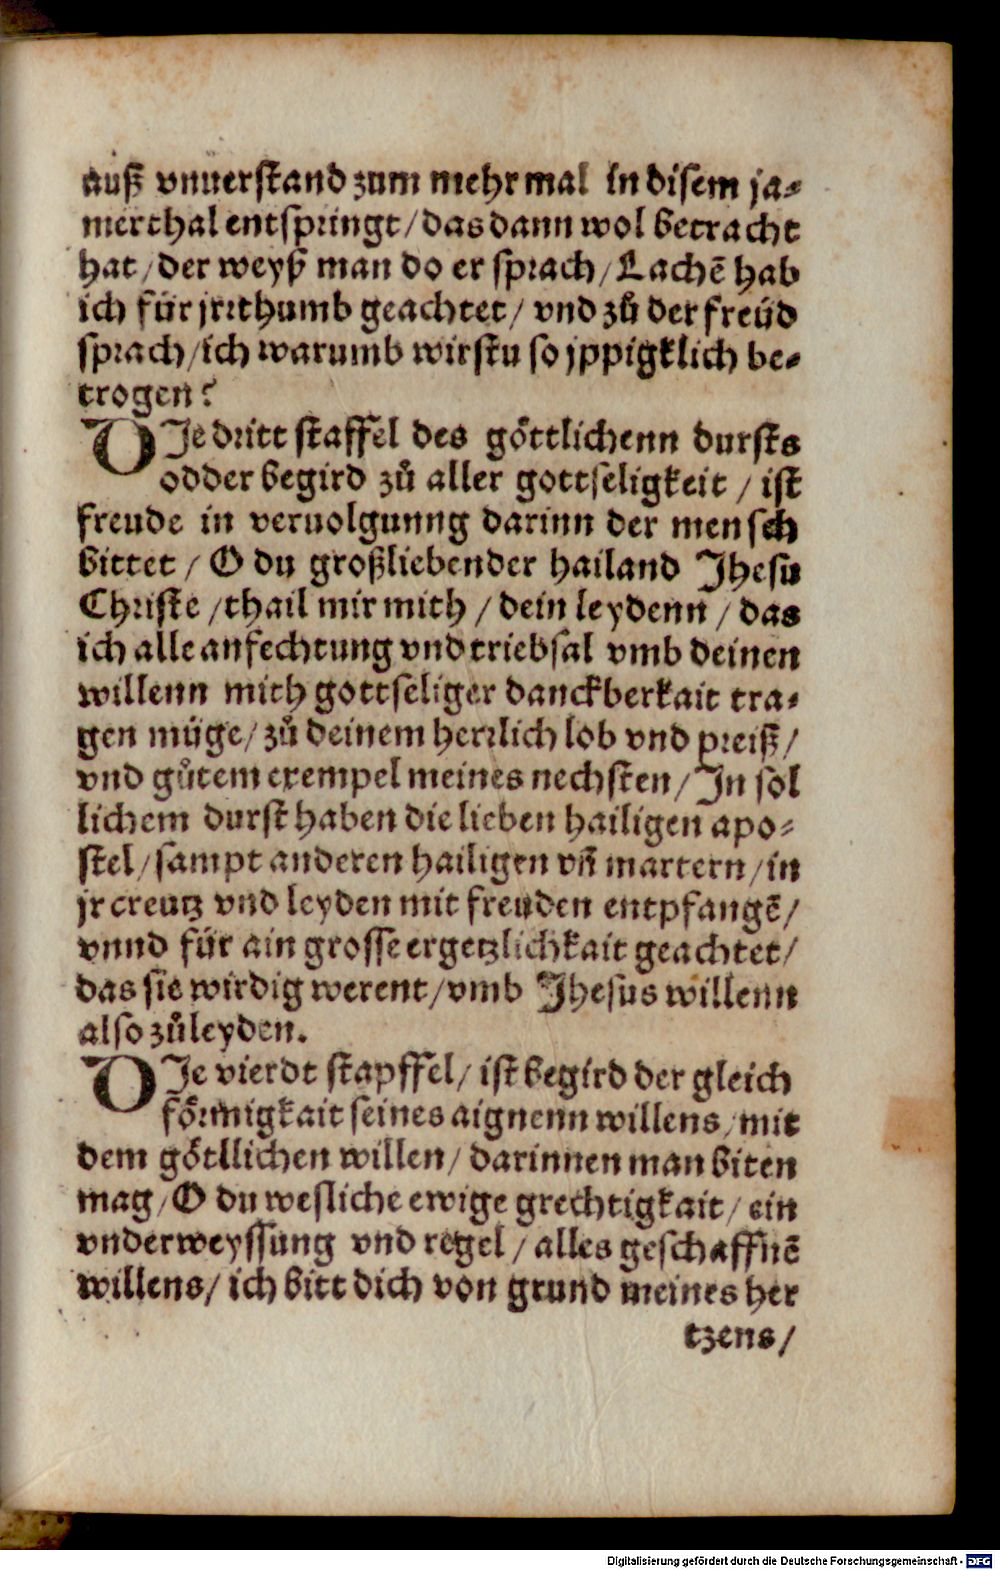 auß vnuerstand zum mehrmal in disem ja⸗
merthal entspringt/das dann wol betracht
hat/der weyß man do er sprach/Lachē hab
ich für jrrthumb geachtet/ vnd zů der freüd
sprach/ich warumb wirstu so jppigklich be⸗
trogen?
DJe dritt staffel des göttlichenn dursts
odder begird zů aller gottseligkeit / ist
freude in veruolgunng darinn der mensch
bittet / O du großliebender hailand Jhesu
Christe /thail mir mith / dein leydenn / das
ich alle anfechtung vnd triebsal vmb deinen
willenn mith gottseliger danckberkait tra⸗
gen müge/ zů deinem herrlich lob vnd preiß/
vnd gůtem exempel meines nechsten/ Jn sol
lichem durst haben die lieben hailigen apo⸗
stel/sampt anderen hailigen vñ martern/in
jr creutz vnd leyden mit freuden entpfangē/
vnnd für ain grosse ergetzlichkait geachtet/
das sie wirdig werent/vmb Jhesus willenn
also zůleyden.
DJe vierdt stapffel/ ist begird der gleich
förmigkait seines aignenn willens/mit
dem götllichen willen/ darinnen man biten
mag/O du wesliche ewige grechtigkait/ ein
vnderweyssung vnd regel / alles geschaffnē
willens/ ich bitt dich von grund meines her
tzens/
Digitalisierung gefördert durch die Deutsche Forschungsgemeinschaft - DFG